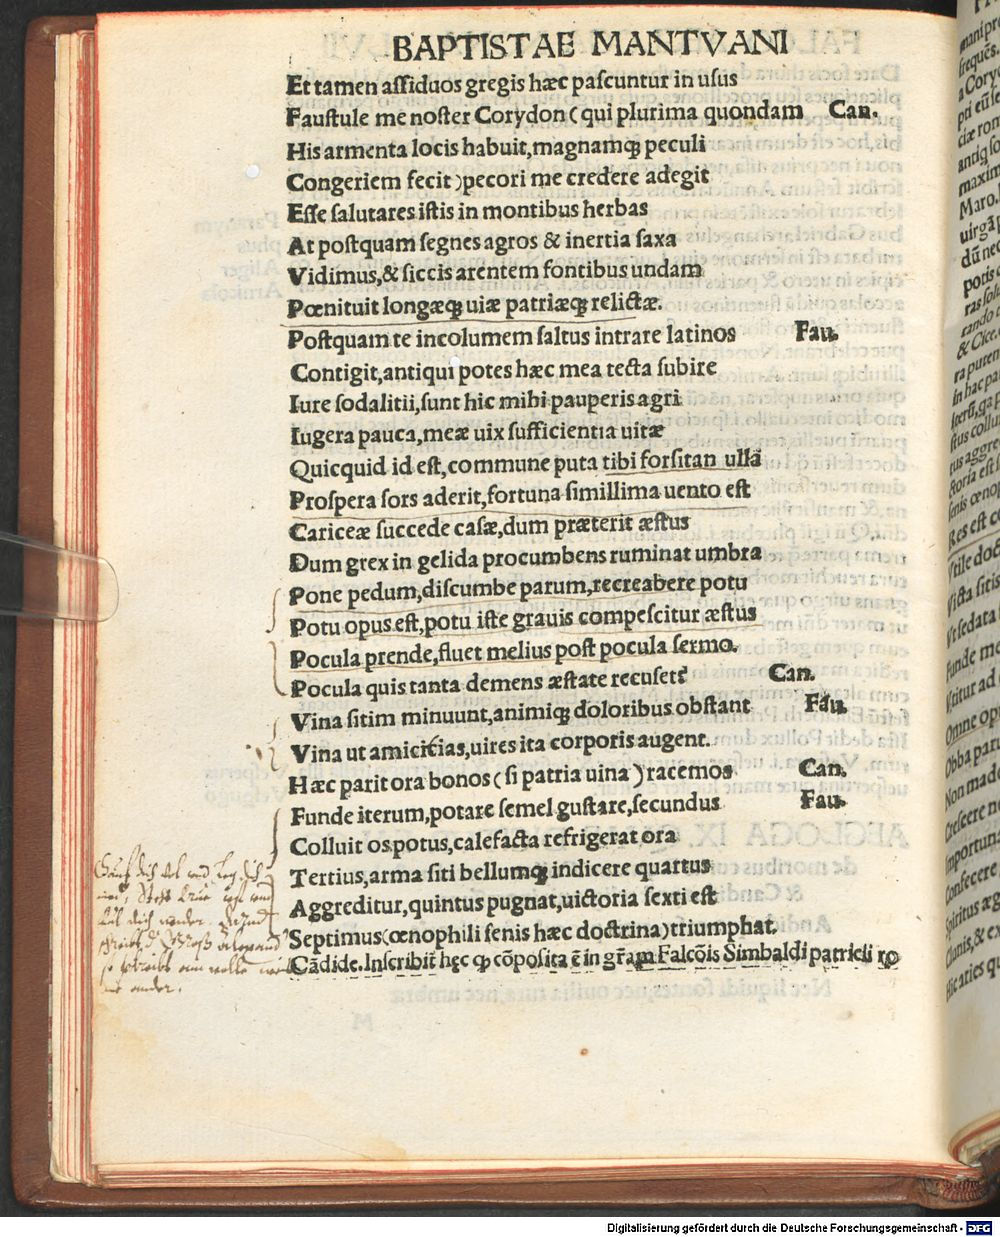 BAPTISTAE MANTVANI
Et tamen aſſiduos gregis hæc paſcuntur in uſus
Fauſtule me noſter Corydon ( qui plurima quondam Can.
His armenta locis habuit, magnamqꝫ peculi
Congeriem fecit ) pecori me credere adegit
Eſſe ſalutares iſtis in montibus herbas
At poſtquam ſegnes agros & inertia ſaxa
Vidimus, & ſiccis arentem fontibus undam
Pœnituit longæqꝫ uiæ patriæqꝫ relictæ.
Poſtquam te incolumem ſaltus intrare latinos Fau.
Contigit, antiqui potes hæc mea tecta ſubire
Iure ſodalitii, ſunt hic mihi pauperis agri
Iugera pauca, meæ uix ſufficientia uitæ
Quicquid id eſt, commune puta tibi forſitan ullā
Proſpera ſors aderit, fortuna ſimillima uento eſt
Cariceæ ſuccede caſæ, dum præterit æſtus
Dum grex in gelida procumbens ruminat umbra
Pone pedum, diſcumbe parum, recreabere potu
Potu opus eſt, potu iſte grauis compeſcitur æſtus
Pocula prende, fluet melius poſt pocula ſermo.
Pocula quis tanta demens æſtate recuſet? Can.
Vina ſitim minuunt, animiqꝫ doloribus obſtant Fau.
Vina ut amicitias, uires ita corporis augent.
Hæc parit ora bonos ( ſi patria uina ) racemos Can.
Funde iterum, potare ſemel guſtare, ſecundus Fau.
Colluit os potus, calefacta refrigerat ora
Tertius, arma ſiti bellumqꝫ indicere quartus
Aggreditur, quintus pugnat, uictoria ſexti eſt
Septimus (œnophili ſenis hæc doctrina) triumphat.
Cādide. Inſcribit̄ hęc ꝙ cōpoſita ē in gr̄am Falcōis Simbaldi patricii ro
Digitalisierung gefördert durch die Deutsche Forschungsgemeinschaft - DFG